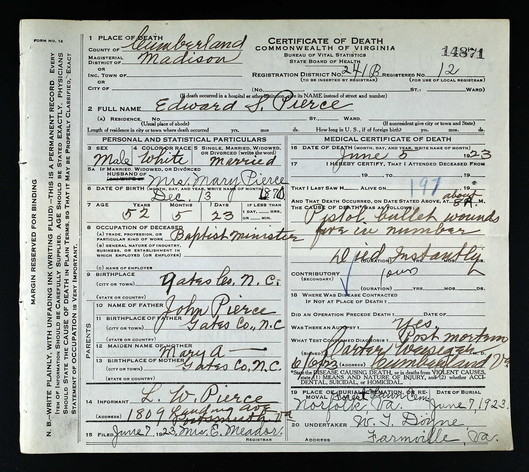 FORM NO. 14
1 PLACE OF DEATH
COUNTY OF Cumberland
MAGISTERIAL DISTRICT OF Madison
INC. TOWN OF
CITY OF
CERTIFICATE OF DEATH
COMMONWEALTH OF VIRGINIA
BUREAU OF VITAL STATISTICS
STATE BOARD OF HEALTH
14871
REGISTRATION DISTRICT NO. 241B REGISTERED NO. 12
(TO BE INSERTED BY REGISTRAR) (FOR USE OF LOCAL REGISTRAR)
ST. WARD)
2 FULL NAME Edward S. Pierce
(A) RESIDENCE No. St. Ward.
(Usual place of abode) (If nonresident give city or town and State)
Length of residence in city or town where death occurred yrs. mos. ds. How long in U. S., if of foreign birth? yrs. mos. ds.
PERSONAL AND STATISTICAL PARTICULARS
3 SEX Male
4 COLOR OR RACE White
5 SINGLE, MARRIED, WIDOWED, OR DIVORCED (write the word) Married
5A IF MARRIED, WIDOWED, OR DIVORCED
HUSBAND OF
Mrs. Mary Pierce
6 DATE OF BIRTH (MONTH, DAY, AND YEAR, WRITE NAME OF MONTH)
Dec. 13 1870
7 AGE YEARS 52 MONTHS 5 DAYS 23
8 OCCUPATION OF DECEASED
(A) TRADE, PROFESSION, OR PARTICULAR KIND OF WORK Baptist Minister
(B) GENERAL NATURE OF INDUSTRY, BUSINESS, OR ESTABLISHMENT IN WHICH EMPLOYED (OR EMPLOYER)
(C) NAME OF EMPLOYER
9 BIRTHPLACE
(CITY OR TOWN)
(STATE OR COUNTRY) Gates Co, N.C.
PARENTS
10 NAME OF FATHER John Pierce
11 BIRTHPLACE OF FATHER
(CITY OR TOWN)
Gates Co, N.C
12 MAIDEN NAME OF MOTHER
Mary A —
13 BIRTHPLACE OF MOTHER
(CITY OR TOWN)
Gates Co, N.C.
14 INFORMANT L. W. Pierce
(ADDRESS) 1809
15 FILED June 7, 23 Mrs. E. Meador.
REGISTRAR
MEDICAL CERTIFICATE OF DEATH
16 DATE OF DEATH (MONTH, DAY, AND YEAR, WRITE NAME OF MONTH)
June 5 1923
17 I HEREBY CERTIFY, THAT I ATTENDED DECEASED FROM
THAT I LAST SAW H ALIVE ON 19
AND THAT DEATH OCCURRED, ON DATE STATED ABOVE, AT about
THE CAUSE OF DEATH WAS AS FOLLOWS:
Pistol bullet wounds
five in number
Died Instantly
(DURATION) YRS. MOS. DS.
CONTRIBUTORY
(SECONDARY)
(DURATION) YRS. MOS. DS.
18 WHERE WAS DISEASE CONTRACTED
IF NOT AT PLACE OF DEATH?
DID AN OPERATION PRECEDE DEATH? DATE OF
WAS THERE AN AUTOPSY? Yes
WHAT TEST CONFIRMED DIAGNOSIS? Post mortem
(SIGNED)
(ADDRESS) Cumberland Va
STATE THE DISEASE CAUSING DEATH, OR IN DEATHS FROM VIOLENT CAUSES, STATE (1) MEANS AND NATURE OF INJURY, AND (2) WHETHER ACCIDENTAL, SUICIDAL, OR HOMICIDAL.
19 PLACE OF BURIAL Forest Lawn Cem
Norfolk Va. June 7, 1923.
20 UNDERTAKER W. T. Doyne
(ADDRESS) Farmville, Va.
MARGIN RESERVED FOR BINDING
N. B.—WRITE PLAINLY, WITH UNFADING INK (WRITING FLUID)—THIS IS A PERMANENT RECORD. EVERY
ITEM OF INFORMATION SHOULD BE CAREFULLY SUPPLIED. AGE SHOULD BE STATED EXACTLY. PHYSICIANS
SHOULD STATE THE CAUSE OF DEATH IN PLAIN TERMS, SO THAT IT MAY BE PROPERLY CLASSIFIED. EXACT
STATEMENT OF OCCUPATION IS VERY IMPORTANT.